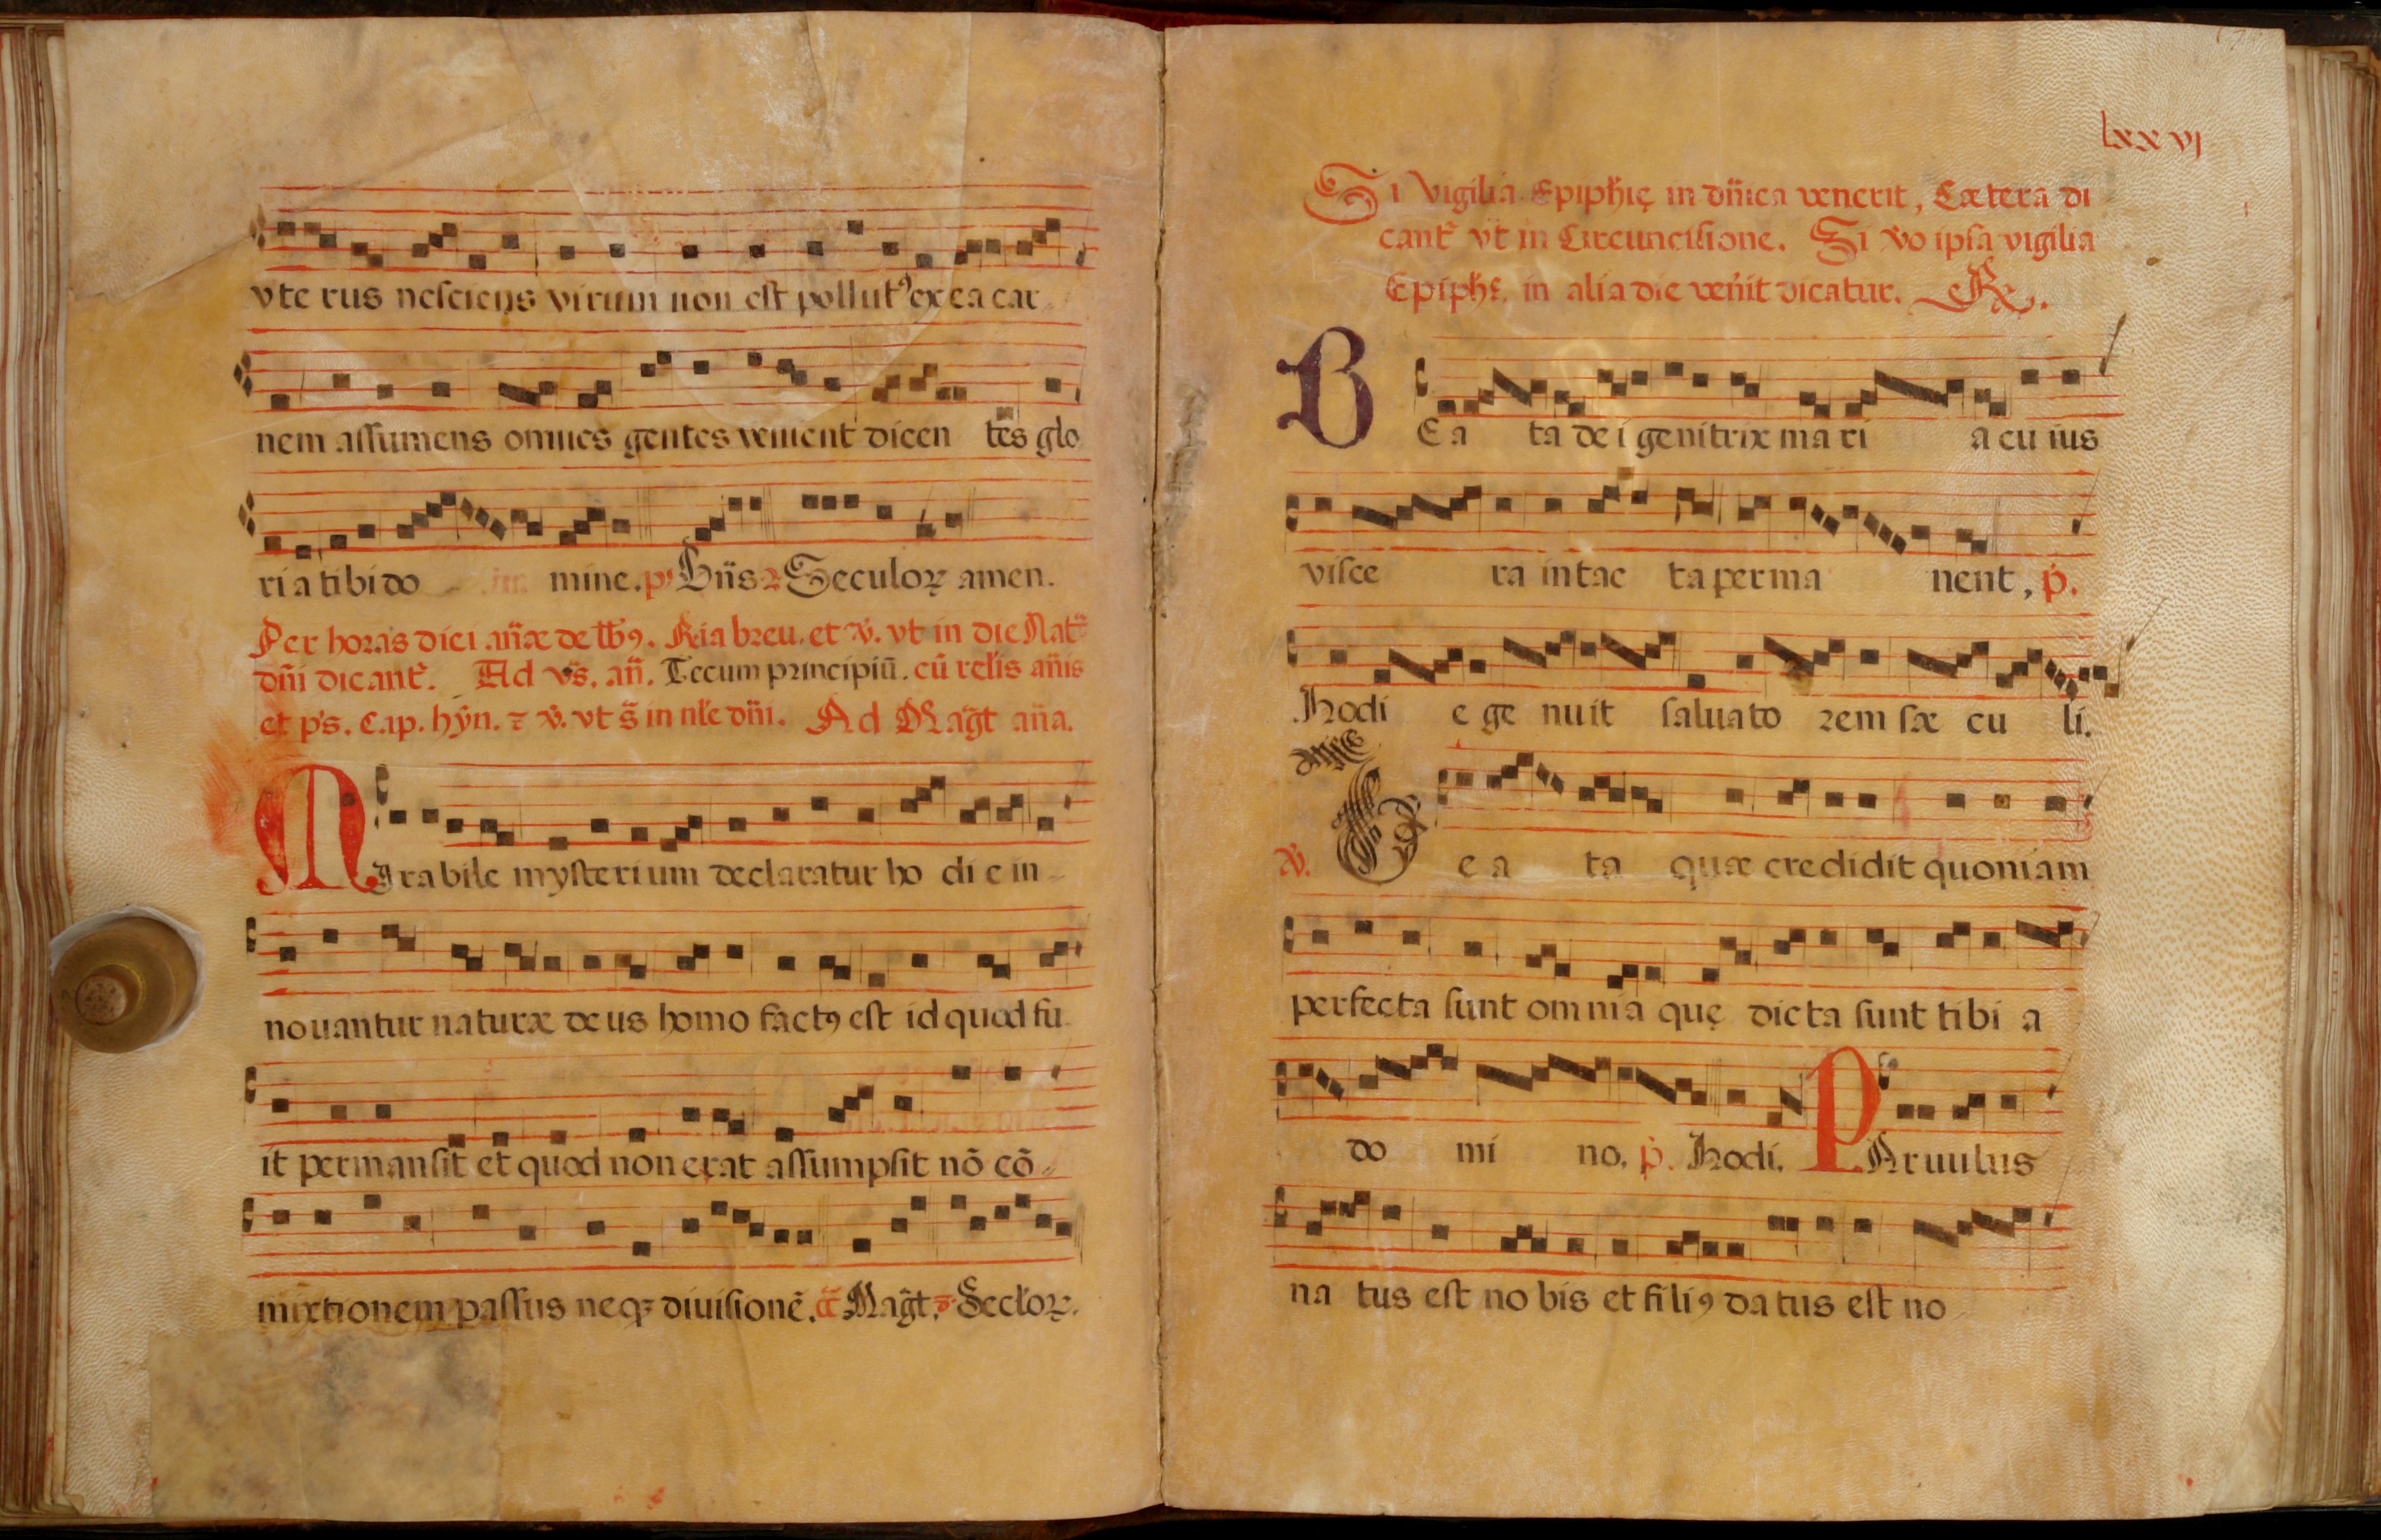 vte rus nesciens virum non est pollutꝰ ex ea car
nem assumens omnes gentes venient dicen tes glo
ri a tibi do mine. pˢ Bñs Seculoꝝ amen.
Per horas diei añæ de lbꝰ. R̃ia breu. et ℣. vt in die Natᵉ
dñi dicantᵉ. Ad vs̃. añ. Tecum principiũ. cũ relĩs añis
et ps. Cap. hỹn. ⁊ ℣. vt s̃ in nĩe dñi. Ad Mag̃t aña.
MIrabile mysterium declaratur ho di e in
nouantur naturæ deus homo factꝰ est id quod fu
it permansit et quod non erat assumpsit nõ cõ
mixtionem passus neqꝫ diuisionẽ. Mag̃t. Secłoꝝ.
lxxvj
Si Vigilia Epiphĩę in dñica venerit, Cætera di
cantᵉ vt in Circuncisione. Si v̊o ipsa vigilia
Epiphĩę, in alia die veñit dicatur. ℟.
BEa ta de i genitrix ma ri a cu ius
visce ra intac ta perma nent, p̃.
Hodi e ge nuit saluato rem sæ cu li.
℣. Be a ta quæ credidit quoniam
perfecta sunt omnia quę dicta sunt tibi a
do mi no. p̃. Hodi. PAruulus
na tus est no bis et filiꝰ datus est no